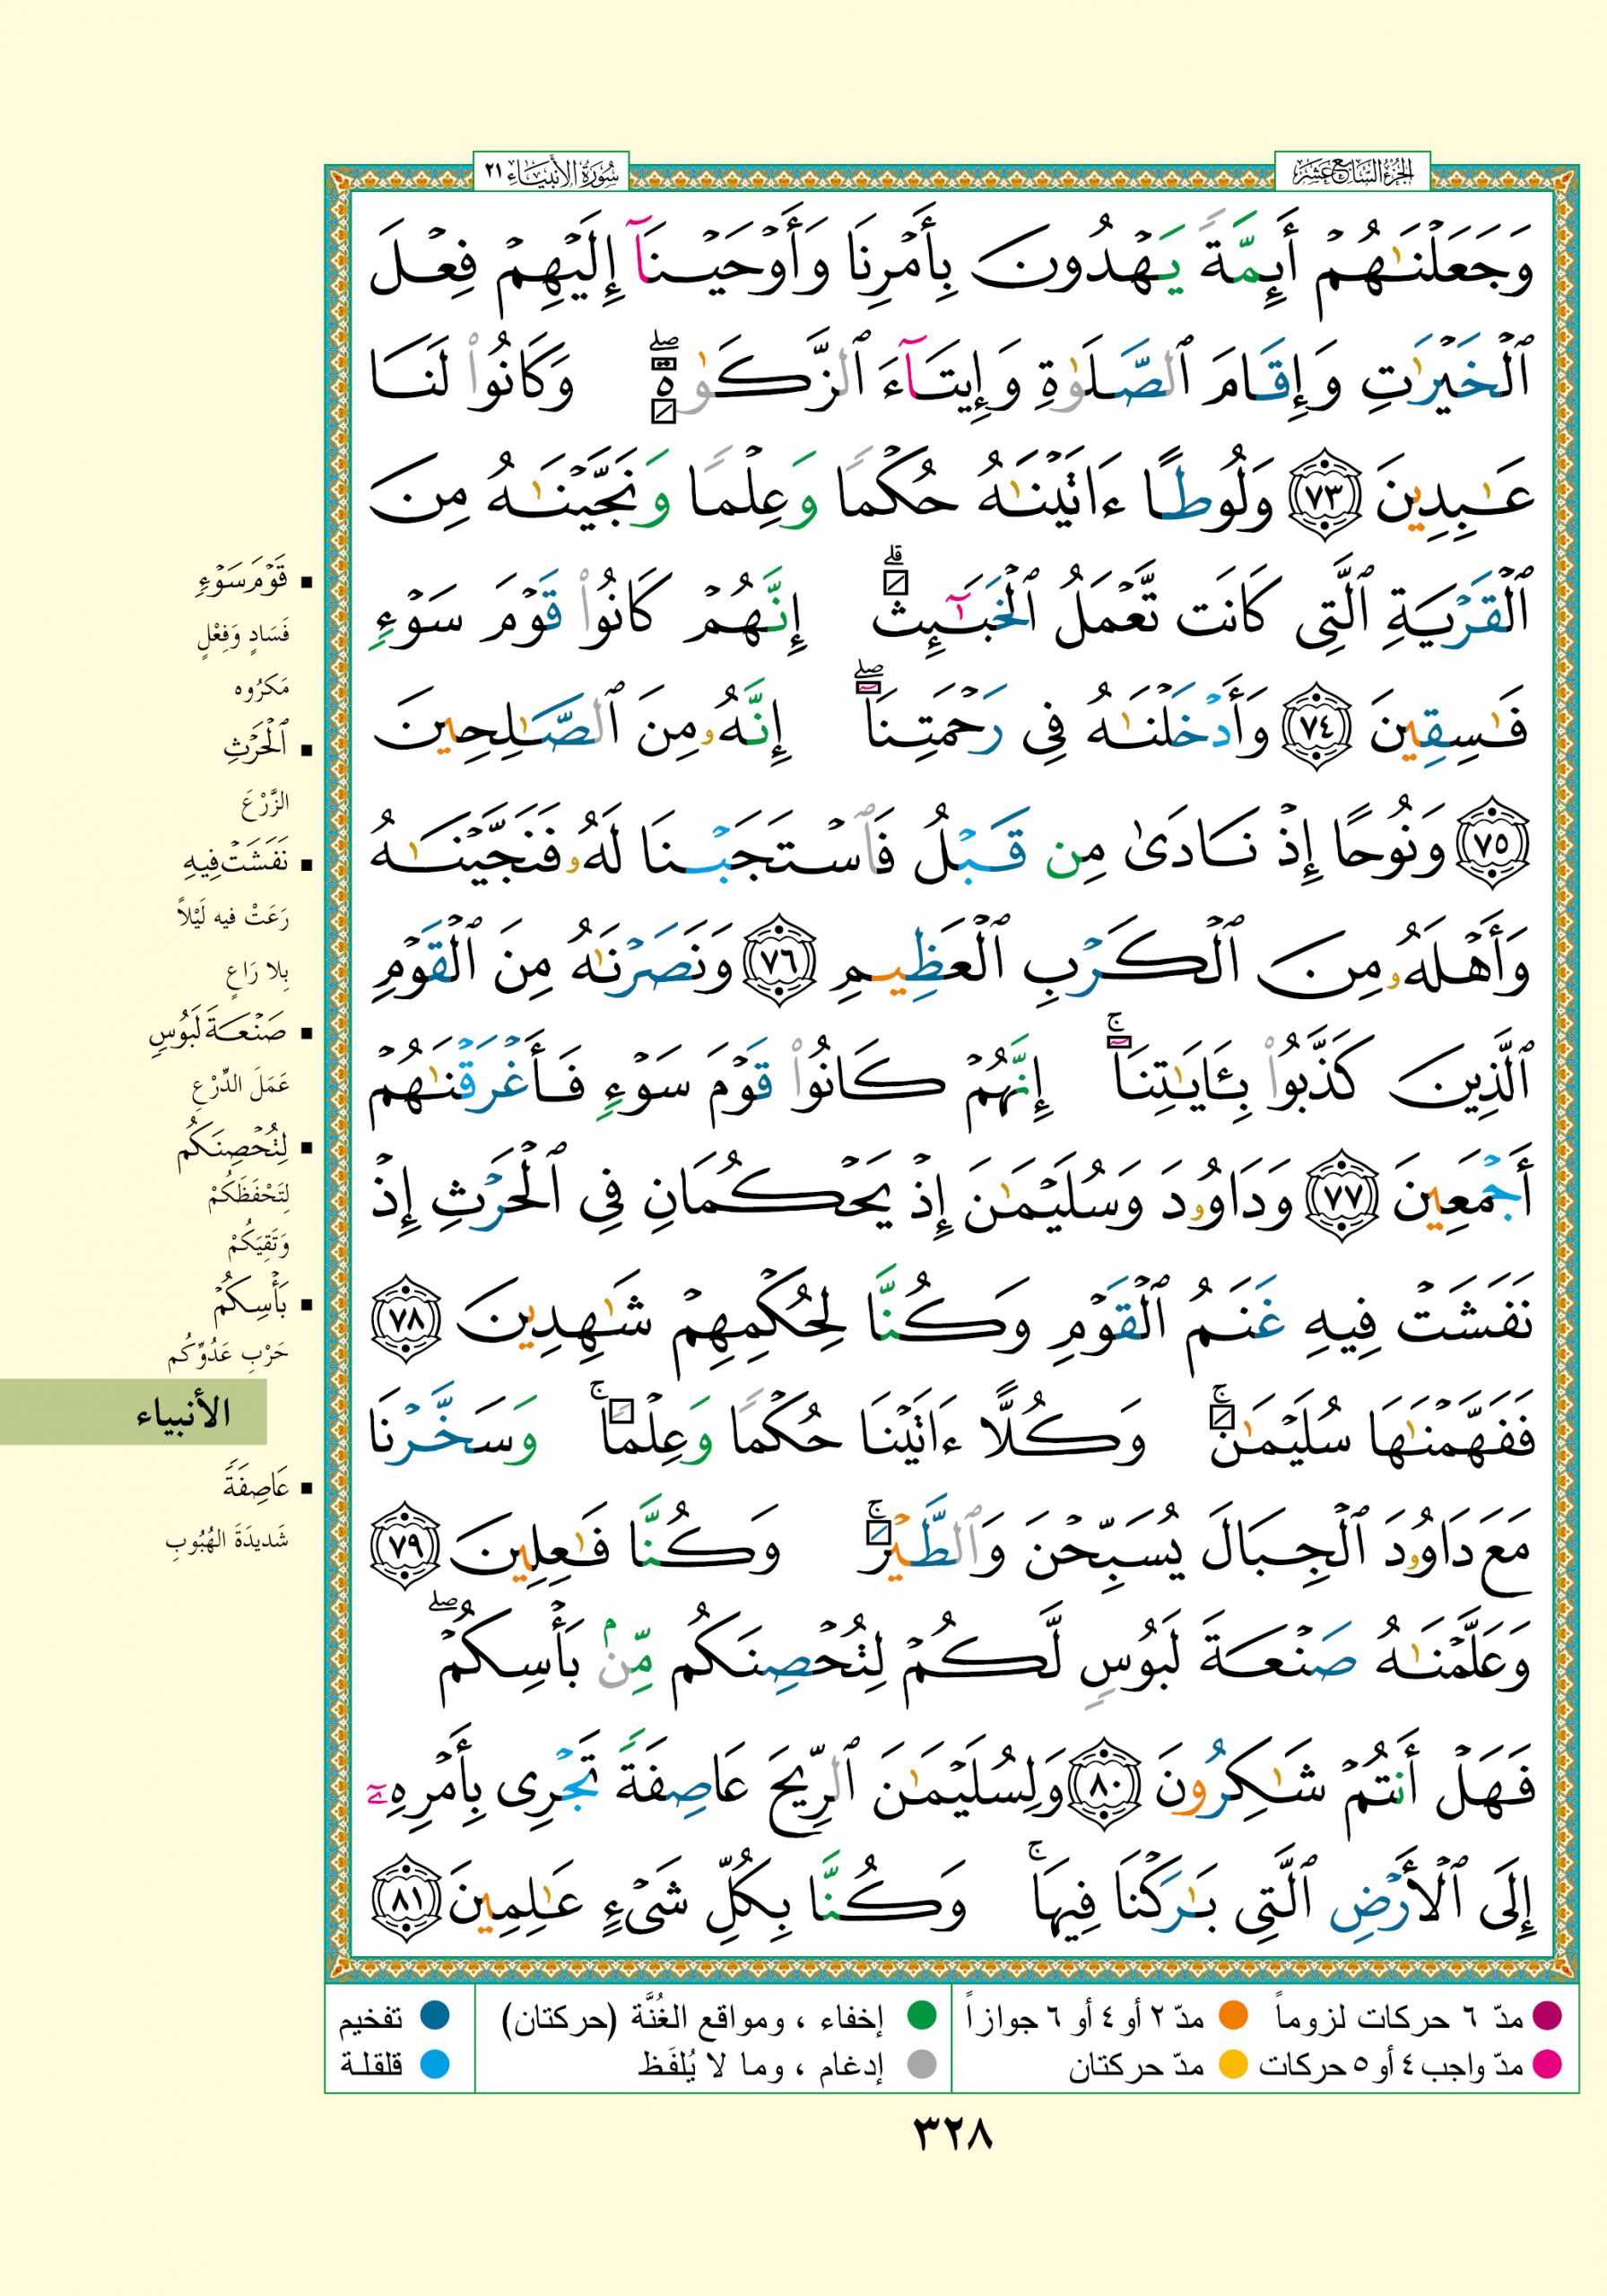 الجزء السابع عشر
سورة الأنبياء ٢١
وَجَعَلْنَٰهُمْ أَئِمَّةً يَهْدُونَ بِأَمْرِنَا وَأَوْحَيْنَآ إِلَيْهِمْ فِعْلَ
ٱلْخَيْرَٰتِ وَإِقَامَ ٱلصَّلَوٰةِ وَإِيتَآءَ ٱلزَّكَوٰةِ ۖ وَكَانُوا۟ لَنَا
عَٰبِدِينَ ٧٣ وَلُوطًا ءَاتَيْنَٰهُ حُكْمًا وَعِلْمًا وَنَجَّيْنَٰهُ مِنَ
ٱلْقَرْيَةِ ٱلَّتِى كَانَت تَّعْمَلُ ٱلْخَبَٰٓئِثَ ۗ إِنَّهُمْ كَانُوا۟ قَوْمَ سَوْءٍ
فَٰسِقِينَ ٧٤ وَأَدْخَلْنَٰهُ فِى رَحْمَتِنَآ ۖ إِنَّهُۥ مِنَ ٱلصَّٰلِحِينَ
٧٥ وَنُوحًا إِذْ نَادَىٰ مِن قَبْلُ فَٱسْتَجَبْنَا لَهُۥ فَنَجَّيْنَٰهُ
وَأَهْلَهُۥ مِنَ ٱلْكَرْبِ ٱلْعَظِيمِ ٧٦ وَنَصَرْنَٰهُ مِنَ ٱلْقَوْمِ
ٱلَّذِينَ كَذَّبُوا۟ بِـَٔايَٰتِنَآ ۚ إِنَّهُمْ كَانُوا۟ قَوْمَ سَوْءٍ فَأَغْرَقْنَٰهُمْ
أَجْمَعِينَ ٧٧ وَدَاوُۥدَ وَسُلَيْمَٰنَ إِذْ يَحْكُمَانِ فِى ٱلْحَرْثِ إِذْ
نَفَشَتْ فِيهِ غَنَمُ ٱلْقَوْمِ وَكُنَّا لِحُكْمِهِمْ شَٰهِدِينَ ٧٨
فَفَهَّمْنَٰهَا سُلَيْمَٰنَ ۚ وَكُلًّا ءَاتَيْنَا حُكْمًا وَعِلْمًا ۚ وَسَخَّرْنَا
مَعَ دَاوُۥدَ ٱلْجِبَالَ يُسَبِّحْنَ وَٱلطَّيْرَ ۚ وَكُنَّا فَٰعِلِينَ ٧٩
وَعَلَّمْنَٰهُ صَنْعَةَ لَبُوسٍ لَّكُمْ لِتُحْصِنَكُم مِّنۢ بَأْسِكُمْ ۖ
فَهَلْ أَنتُمْ شَٰكِرُونَ ٨٠ وَلِسُلَيْمَٰنَ ٱلرِّيحَ عَاصِفَةً تَجْرِى بِأَمْرِهِۦٓ
إِلَى ٱلْأَرْضِ ٱلَّتِى بَٰرَكْنَا فِيهَا ۚ وَكُنَّا بِكُلِّ شَىْءٍ عَٰلِمِينَ ٨١
قَوْمَ سَوْءٍ
فَسَادٍ وَفِعْلٍ
مَكرُوه
ٱلْحَرْثِ
الزَّرْعَ
نَفَشَتْ فِيهِ
رَعَتْ فيه لَيْلاً
بِلا رَاعٍ
صَنْعَةَ لَبُوسٍ
عَمَلَ الدِّرْعِ
لِتُحْصِنَكُم
لِتَحْفَظَكُمْ
وَتَقِيَكُمْ
بَأْسِكُمْ
حَرْبِ عَدُوِّكُم
الأنبياء
عَاصِفَةً
شَديدَةَ الهُبُوبِ
مدّ ٦ حركات لزوماً مدّ ٢ أو ٤ أو ٦ جوازاً إخفاء ، ومواقع الغُنَّة (حركتان) تفخيم
مدّ واجب ٤ أو ٥ حركات مدّ حركتان إدغام ، وما لا يُلفَظ قلقلة
٣٢٨